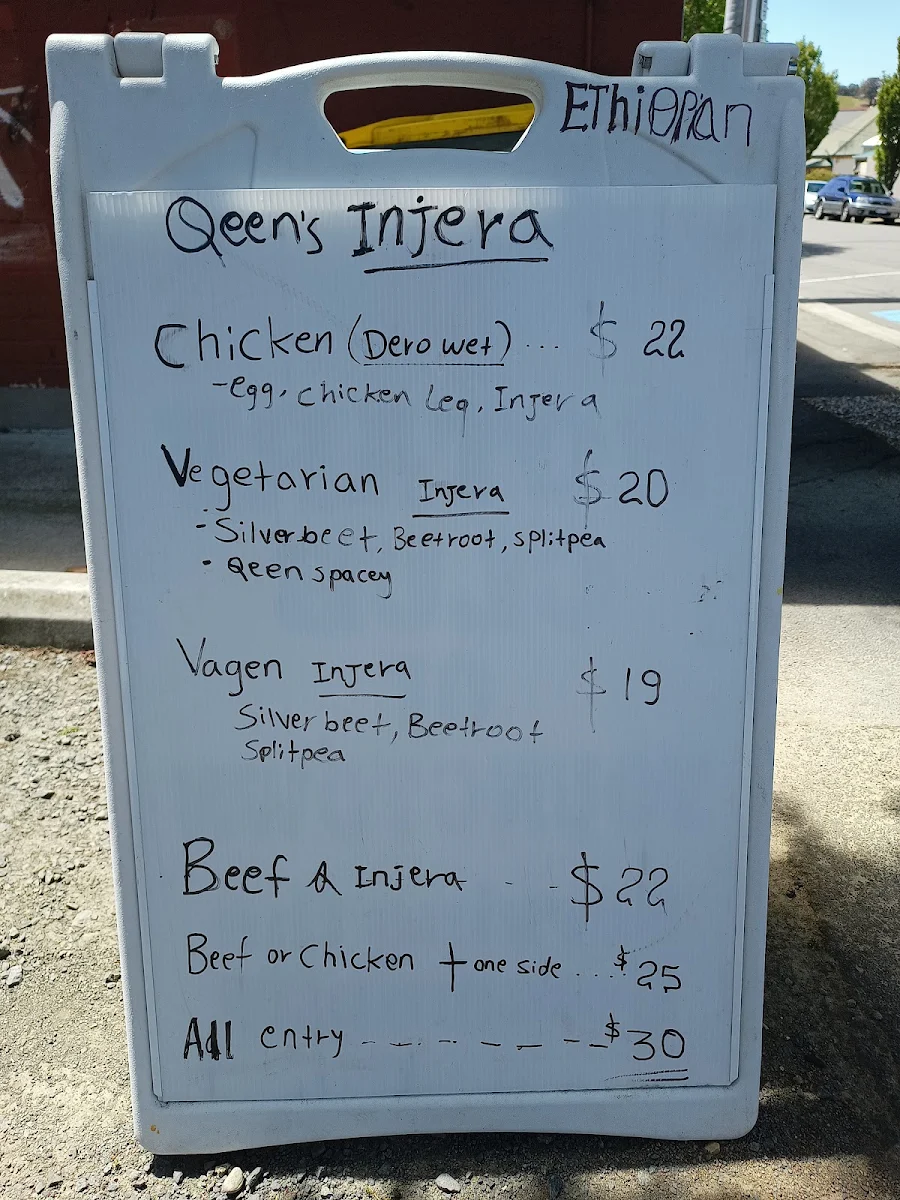 EThiopian
Qeen's Injera
Chicken (Dero wet) ... $ 22
-egg, chicken Leg, Injera
Vegetarian Injera $20
- Silverbeet, Beetroot, splitpea
- Qeen spacey
Vagen Injera $19
Silverbeet, Beetroot
Splitpea
Beef & Injera - - $22
Beef or Chicken + one side ... $25
All entry - - - - - - - $30